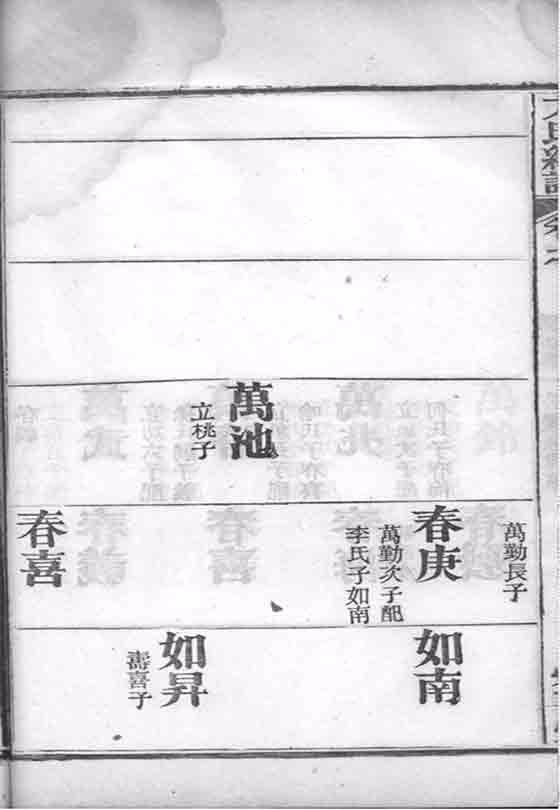 萬池
立桃子
萬勤長子
春庚
萬勤次子配
李氏子如南
春喜
如南
如昇
壽喜子